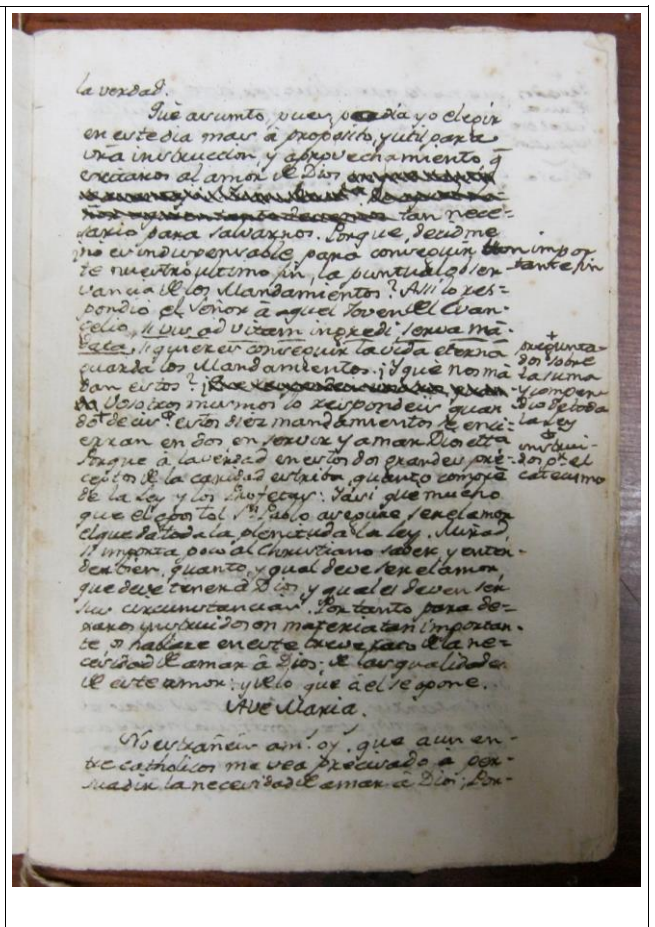 la verdad.
Què asumpto, pues, podia yo elegir
en este dia mas à proposito, y util para
vrã instruccion, y aprovechamiento, q̃
excitaros al amor de Dios
tan nece-
sario para salvarnos. Porque, decidme
no es indispensable para conseguir tan impor-
tante fin
te nuestro ultimo fin, la puntual obser-
vancia de los Mandamientos? Assi lo res-
pondio el Señor à aquel Joven del Evan-
gelio, si vis ad vitam ingredi, serva mã-
data, si quieres conseguir la vida eterna
guarda los Mandamientos. ¡Y que nos mã
dan estos?
Vosotros mismos lo respondeis quan
do decis, q.e estos diez mandamientos se enci-
erran en dos en servir y amar Dios etta
Porque à la verdad en estos dos grandes pre-
ceptos de la caridad estriba, quanto compre
de la Ley y los Profetas. Y asi que mucho
que el apostol S.n Pablo asegure ser el amor
el que da toda la plenitud à la ley. Mirad
si importa poco al Christiano saber y enten-
der bien, quanto, y qual deve ser el amor,
que deve tener à Dios, y quales deven ser
sus circunstancias. Por tanto para de-
xaros instruidos en materia tan importan-
te, os hablare en este breve rato de la ne-
cesidad de amar à Dios; de las qualidades
de este amor: y de lo que à el se opone.
Ave Maria.
No estrañeis am.s oy.s que aun en-
tre catholicos me vea precisado à per-
suadir la necesidad de amar à Dios; Por-
pregunta-
dos sobre
la suma
y compen
dio de toda
la ley
instrui-
dos p.r el
catecismo